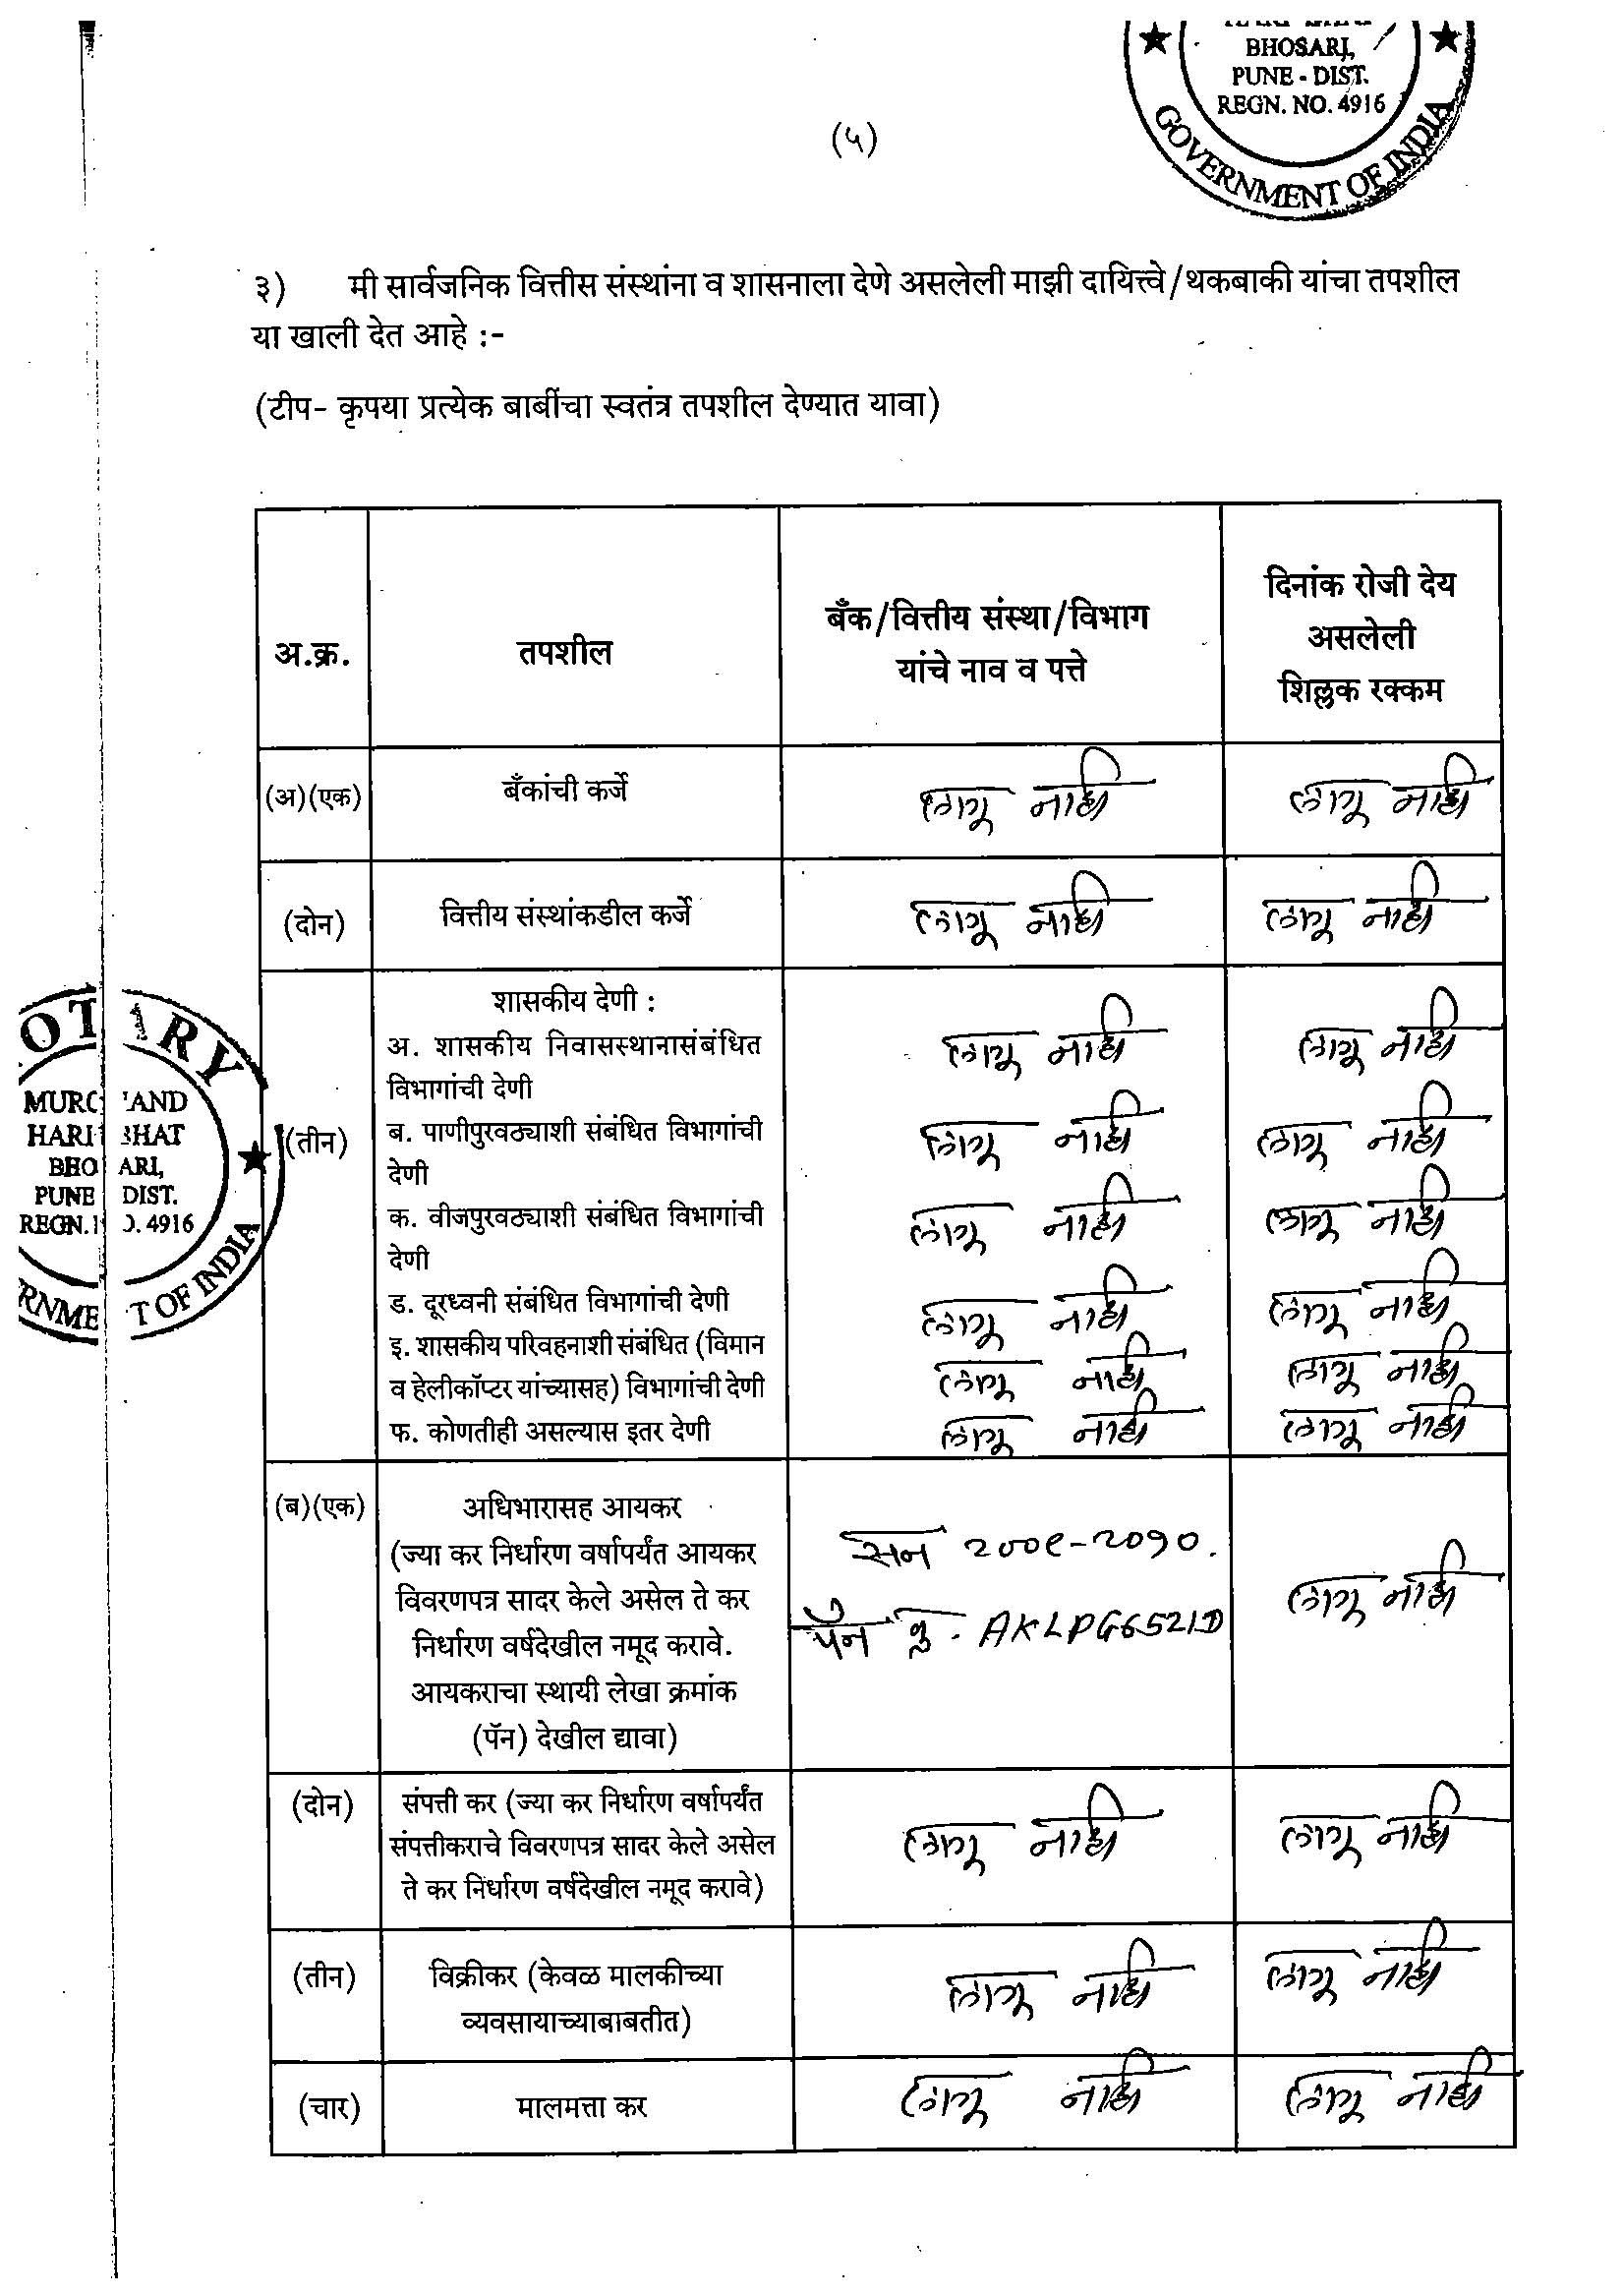 BHOSARI,
PUNE - DIST.
REGN. NO. 4916
GOVERNMENT OF INDIA
(५)
३) मी सार्वजनिक वित्तीस संस्थांना व शासनाला देणे असलेली माझी दायित्त्वे/थकबाकी यांचा तपशील
या खाली देत आहे :-
(टीप- कृपया प्रत्येक बाबींचा स्वतंत्र तपशील देण्यात यावा)
अ.क्र. तपशील बँक/वित्तीय संस्था/विभाग यांचे नाव व पत्ते दिनांक रोजी देय असलेली शिल्लक रक्कम
(अ)(एक) बँकांची कर्जे लागू नाही लागू नाही
(दोन) वित्तीय संस्थांकडील कर्जे लागू नाही लागू नाही
(तीन) शासकीय देणी :
अ. शासकीय निवासस्थानासंबंधित लागू नाही लागू नाही
विभागांची देणी
ब. पाणीपुरवठ्याशी संबंधित विभागांची लागू नाही लागू नाही
देणी
क. वीजपुरवठ्याशी संबंधित विभागांची लागू नाही लागू नाही
देणी
ड. दूरध्वनी संबंधित विभागांची देणी लागू नाही लागू नाही
इ. शासकीय परिवहनाशी संबंधित (विमान लागू नाही लागू नाही
व हेलीकॉप्टर यांच्यासह) विभागांची देणी
फ. कोणतीही असल्यास इतर देणी लागू नाही लागू नाही
(ब)(एक) अधिभारासह आयकर
(ज्या कर निर्धारण वर्षापर्यंत आयकर सन २००९-२०१०.
विवरणपत्र सादर केले असेल ते कर लागू नाही
निर्धारण वर्षदेखील नमूद करावे. पॅन क्र. AKLPG6521D
आयकराचा स्थायी लेखा क्रमांक
(पॅन) देखील द्यावा)
(दोन) संपत्ती कर (ज्या कर निर्धारण वर्षापर्यंत
संपत्तीकराचे विवरणपत्र सादर केले असेल लागू नाही लागू नाही
ते कर निर्धारण वर्षदेखील नमूद करावे)
(तीन) विक्रीकर (केवळ मालकीच्या लागू नाही लागू नाही
व्यवसायाच्याबाबतीत)
(चार) मालमत्ता कर लागू नाही लागू नाही
BHOSARI,
PUNE DIST.
REGN. NO. 4916
OF INDIA